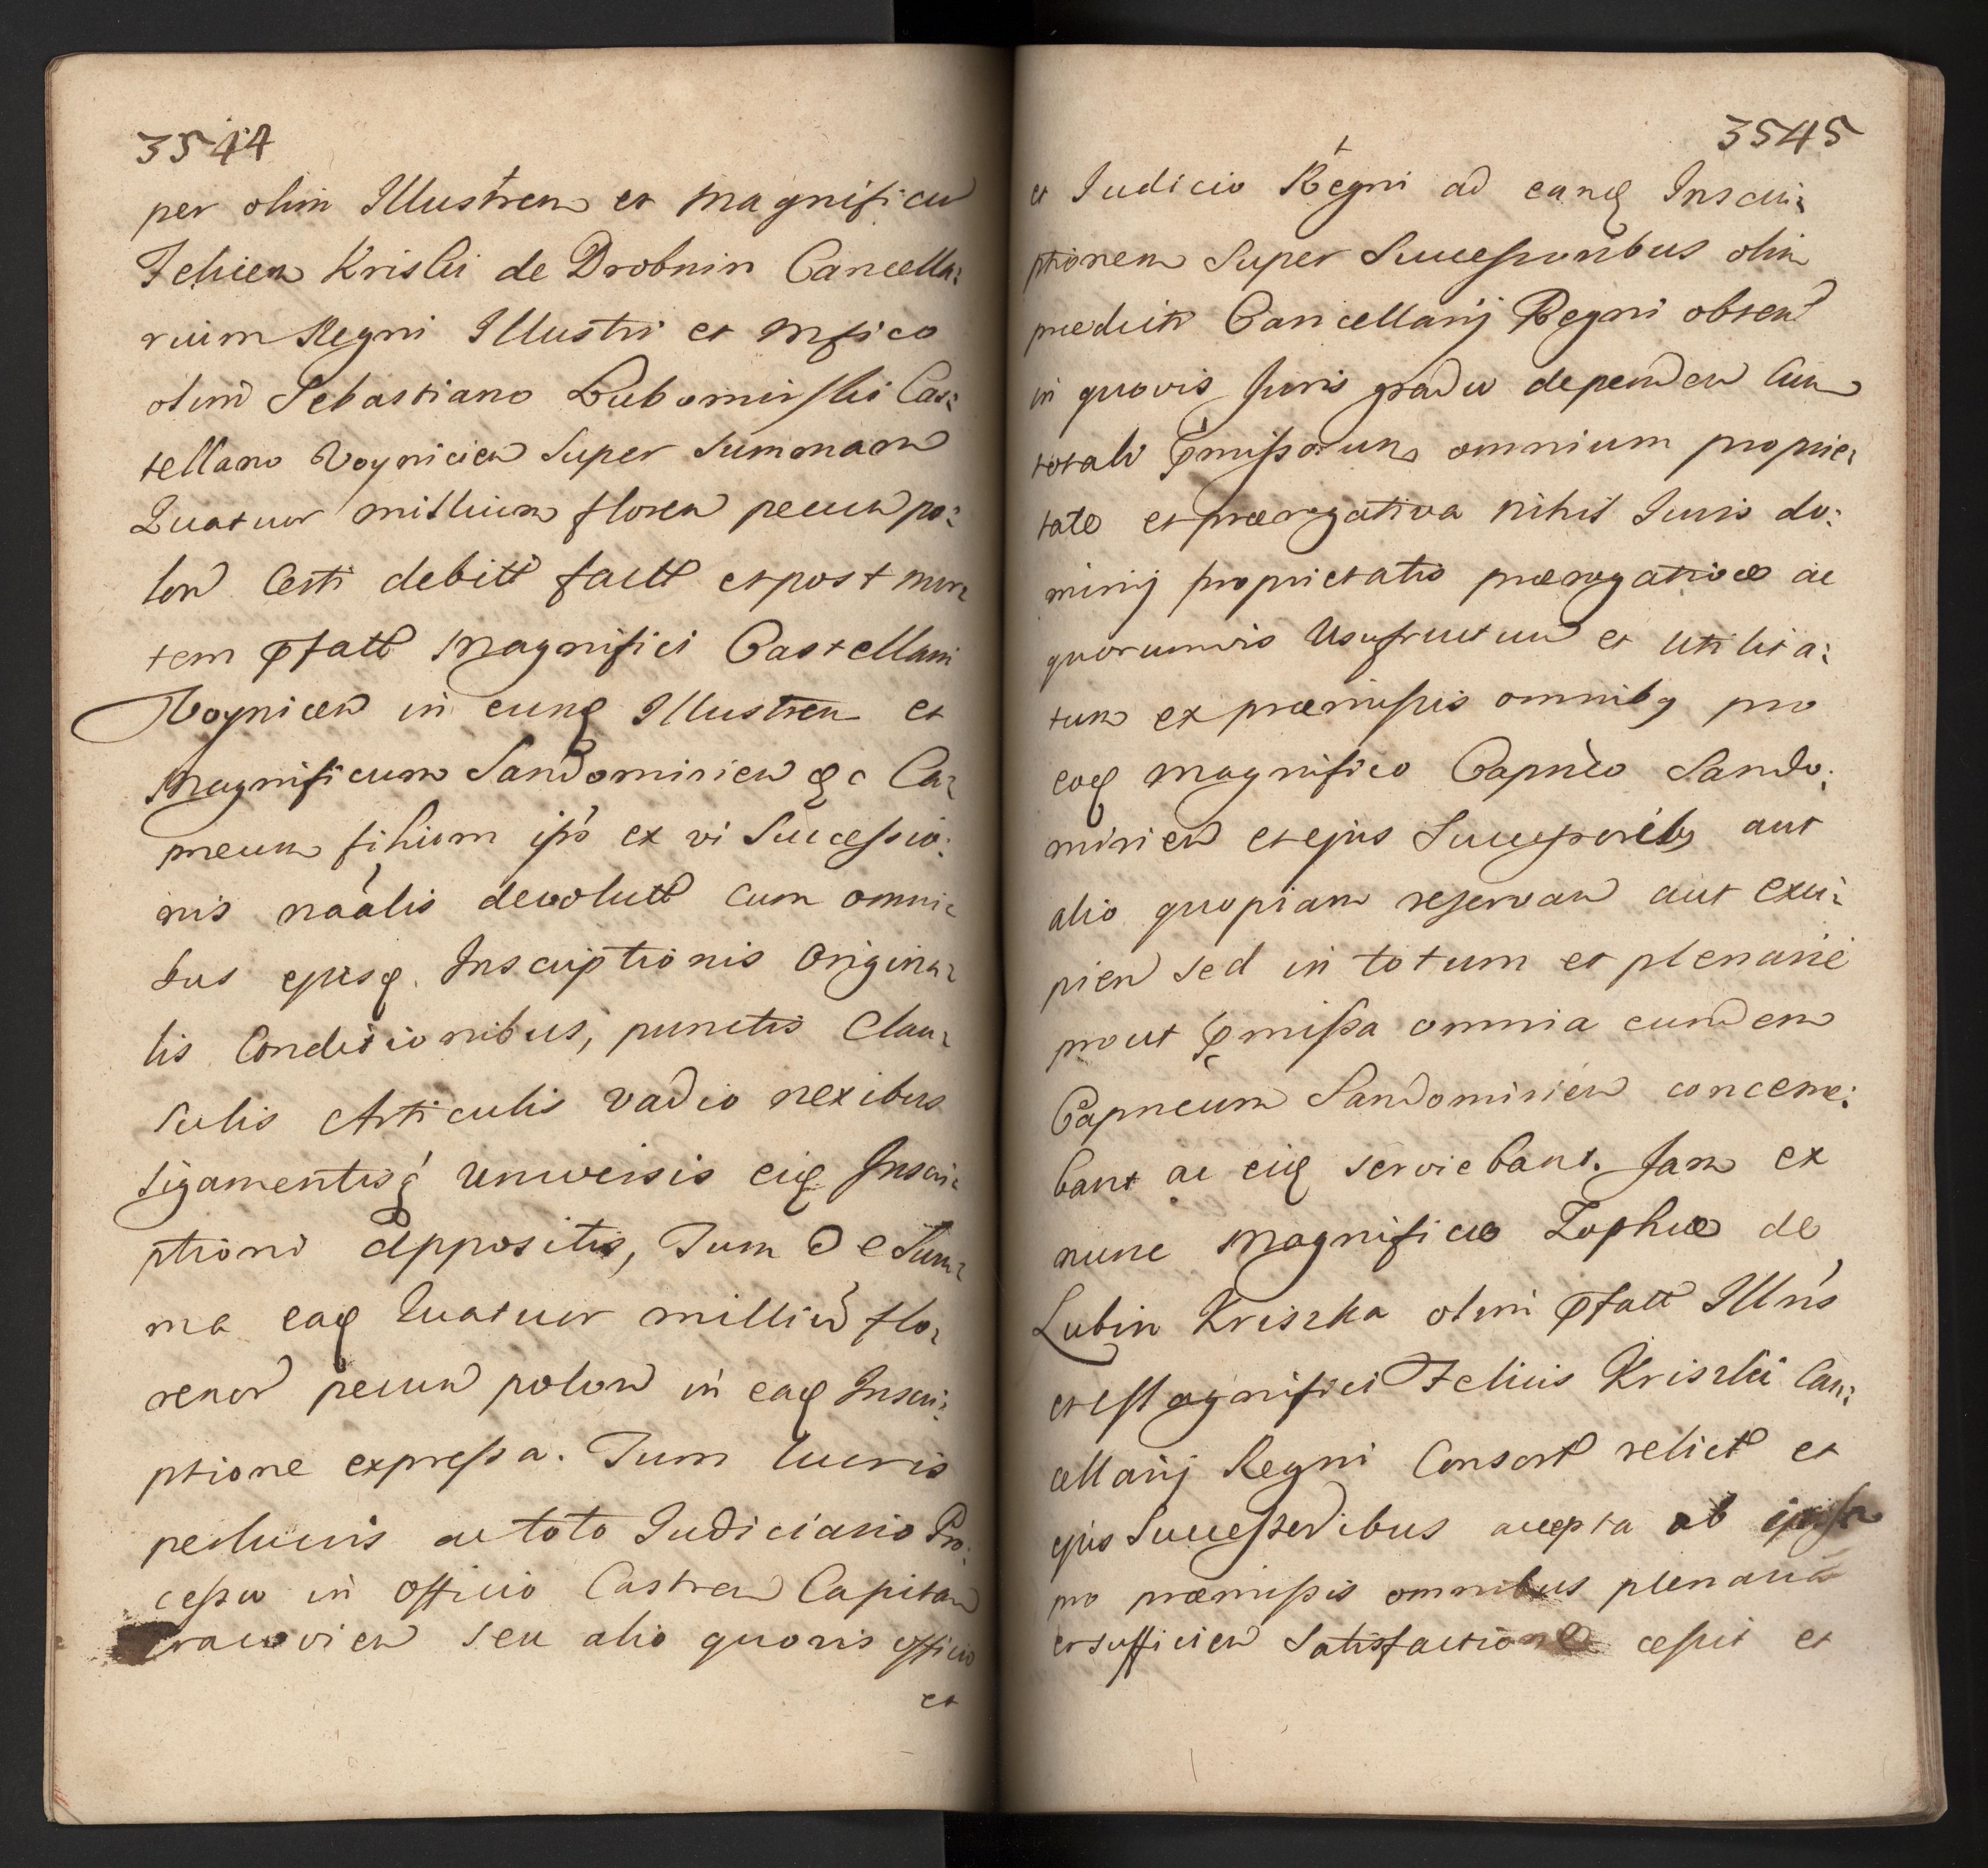 3544
per olim Illustrem et Magnificu
Felicem Kriski de Drobnin Cancella:
rium Regni Illustri et Mfico
olim Sebastiano Lubomirski Cas:
tellano Voynicien Super Summam
Quatuor millium floren pecun po:
lon Certi debitt factt et post mor:
tem pfatt Magnifici Castellani
Voynicen in eunq Illustrem et
Magnificum Sandomirien &c Ca:
pneum filium ips ex vi Successio:
nis naalis devolutt cum omni:
bus ejusq. Inscriptionis Origina:
lis Conditionibus, punctis Clau:
sulis Articulis vadio nexibus
ligamentisq universis eiq Inscri:
ptioni appositis, Tum De Sum:
ma eaq Quatuor milliu flo:
renor pecun polon in eaq Inscri:
ptione expressa. Tum lucris
perlucris ac toto Judiciario Pro:
cessu in officio Castren Capitan
Cracovien seu alio quovis officio
et
3545
et Judicio Regni ad eanq Inscri:
ptionem Super Successoribus olim
praedicti Cancellarij Regni obtent
in quovis Juris gradu dependen Cum
totali pmissorum omnium proprie:
tate et praerogativa nihil Juris do:
minij proprietatis praerogativae ac
quorumvis Usufructuum et Utilita:
tum ex praemissis omnibq pro
eoq Magnifico Capneo Sando:
mirien et ejus Successoribq aut
alio quopiam reservan aut exci:
pien sed in totum et plenarie
prout pmissa omnia eundem
Capneum Sandomirien concerne:
bant ac eiq serviebant. Jam ex
nunc Magnificae Zophiae de
Lubin Kriszka olim pfatt Illris
et Magnifici Felicis Kriszki Can:
cellarij Regni Consort relict et
ejus Successoribus accepta ab
pro praemissis omnibus plenaria
et sufficien Satisfactione cessit et